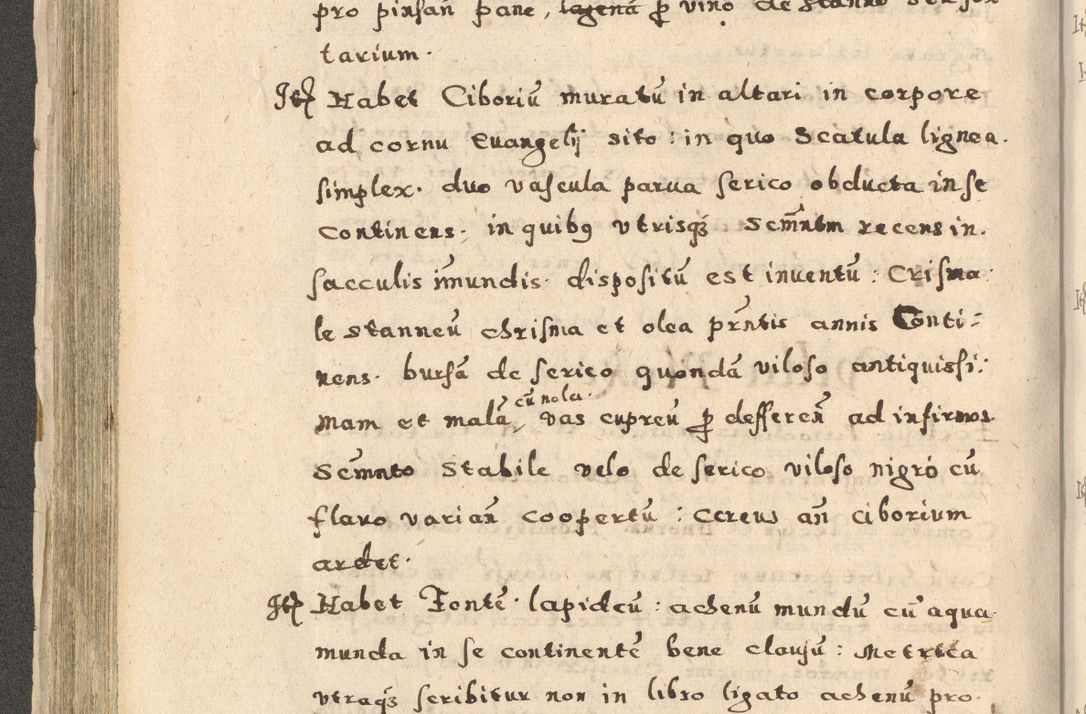 pro pinsañ pane, lagená ꝑ vino de stanno
tarium.
Itꝫ Habet Ciboriū muratū in altari in corpore
ad cornu Euangelij sito: in quo Scatula lignea.
simplex. duo vascula parua serico obducta in se
continens. in quibꝰ vtrisqꝫ Scm̃ntm recens in.
sacculis im̃undis. dispositū est inuentū: Crisma-
le stanneū chrisma et olea pr̃ntis annis Conti-
nens. bursā de serico quondā viloso antiquissi-
mam et malā, cū nola. vas cupreū ꝑ deffereñ ad infirmos
Scm̃nto stabile velo de serico viloso nigro cū
flauo variañ coopertū: Cereus añ ciborium
ardet.
Itꝫ Habet Fontē lapideū: achenū mundū cū aqua
munda in se continentē bene clausū: Metrica
vtraqꝫ scribitur non in libro ligato achenū pro-